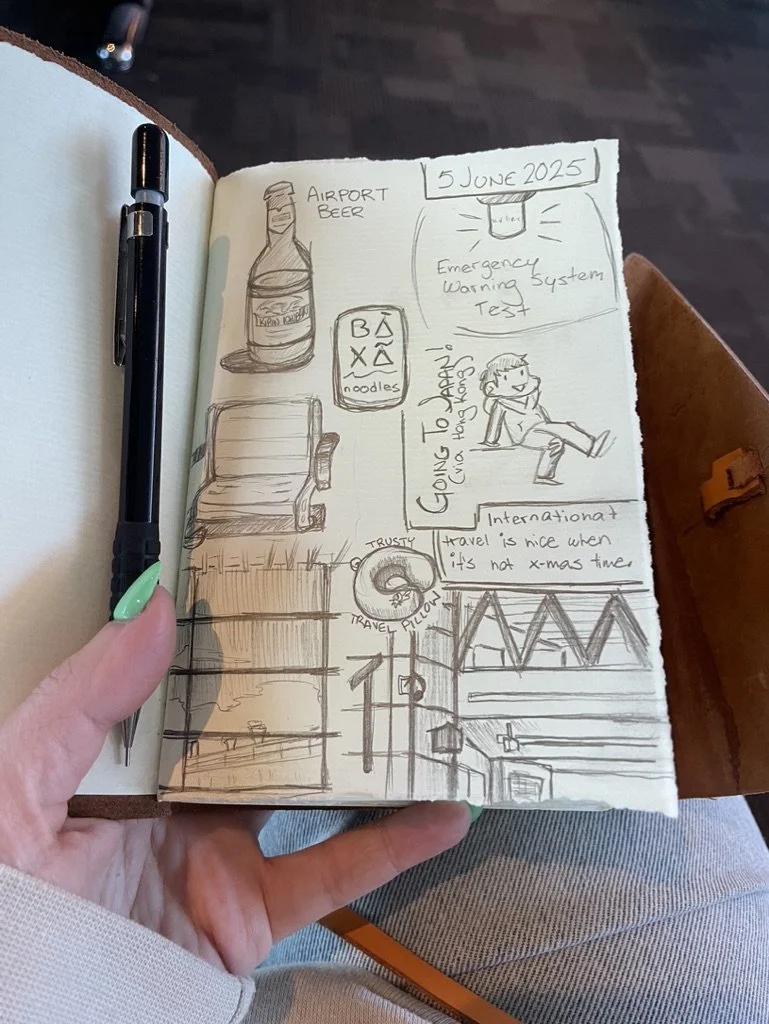 AIRPORT
BEER
KIRIN ICHIBAN
5 JUNE 2025
Emergency
Warning System
Test
BÀ
XÃ
noodles
GOING TO JAPAN!
(via Hong Kong)
International
travel is nice when
it's not x-mas time.
TRUSTY
TRAVEL PILLOW